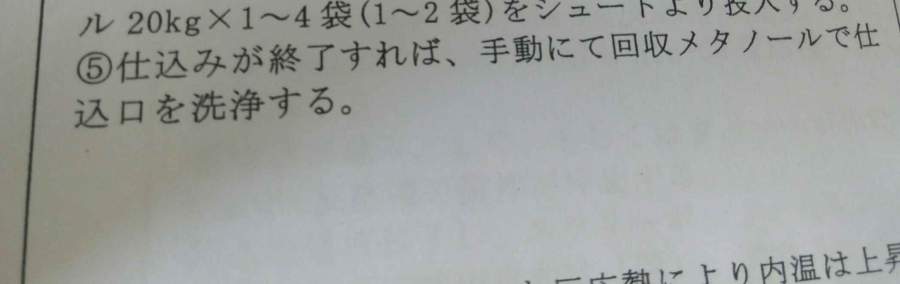 ル20kg×1～4袋(1～2袋)をシュートより投入する。
⑤仕込みが終了すれば、手動にて回収メタノールで仕
込口を洗浄する。
反応熱により内温は上昇